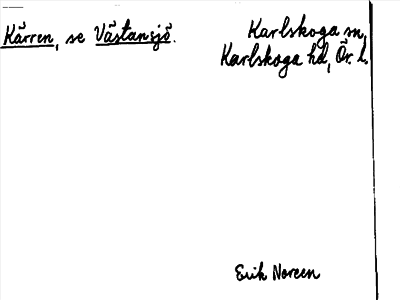 Kärren, se Västansjö.
Karlskoga sn,
Karlskoga hd, Ör. l.
Erik Noreen